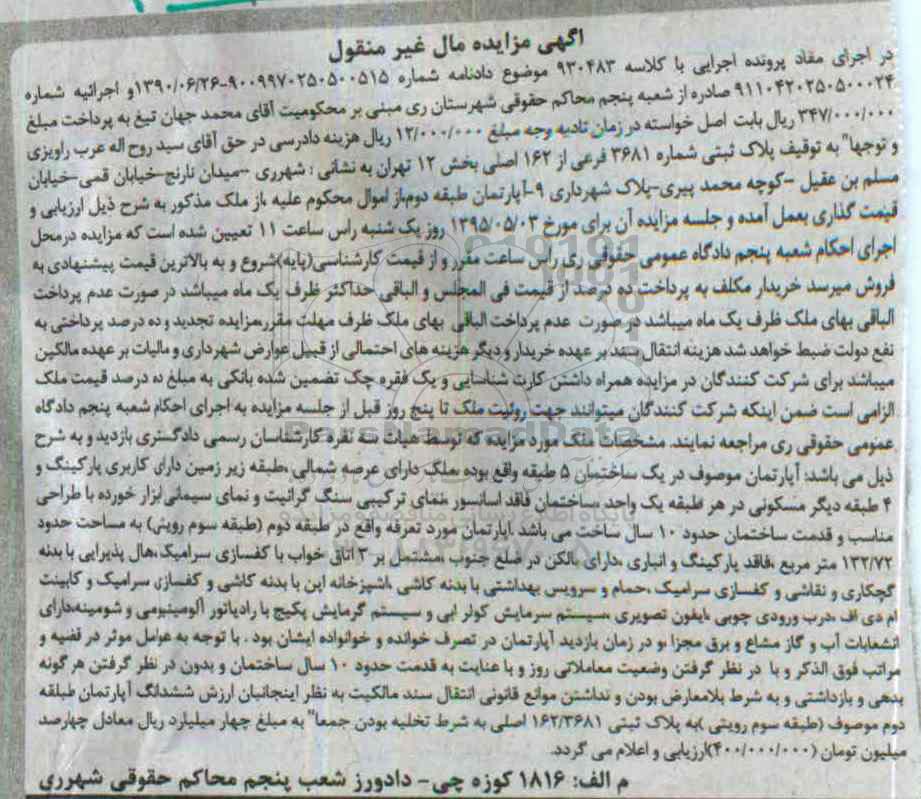 آگهی مزایده مال غیر منقول
در اجرای مفاد پرونده اجرایی با کلاسه ۹۳۰۴۸۳ موضوع دادنامه شماره ۹۰۰۹۹۷۰۲۵۰۵۰۰۵۱۵-۱۳۹۰/۰۶/۲۶و اجرائیه شماره
۹۱۱۰۴۲۰۲۵۰۵۰۰۰۲۴ صادره از شعبه پنجم محاکم حقوقی شهرستان ری مبنی بر محکومیت آقای محمد جهان تیغ به پرداخت مبلغ
۳۴۷/۰۰۰/۰۰۰ ریال بابت اصل خواسته در زمان تادیه وجه مبلغ ۱۲/۰۰۰/۰۰۰ ریال هزینه دادرسی در حق آقای سید روح اله عرب راویزی
و توجها" به توقیف پلاک ثبتی شماره ۳۶۸۱ فرعی از ۱۶۲ اصلی بخش ۱۲ تهران به نشانی : شهرری -میدان نارنج-خیابان قمی-خیابان
مسلم بن عقیل -کوچه محمد پیری-پلاک شهرداری ۹-آپارتمان طبقه دوم،از اموال محکوم علیه ،از ملک مذکور به شرح ذیل ارزیابی و
قیمت گذاری بعمل آمده و جلسه مزایده آن برای مورخ ۱۳۹۵/۰۵/۰۳ روز یک شنبه راس ساعت ۱۱ تعیین شده است که مزایده درمحل
اجرای احکام شعبه پنجم دادگاه عمومی حقوقی ری راس ساعت مقرر و از قیمت کارشناسی(پایه)شروع و به بالاترین قیمت پیشنهادی به
فروش میرسد خریدار مکلف به پرداخت ده درصد از قیمت فی المجلس و الباقی حداکثر ظرف یک ماه میباشد در صورت عدم پرداخت
الباقی بهای ملک ظرف یک ماه میباشد در صورت عدم پرداخت الباقی بهای ملک ظرف مهلت مقرر،مزایده تجدید و ده درصد پرداختی به
نفع دولت ضبط خواهد شد هزینه انتقال سند بر عهده خریدار و دیگر هزینه های احتمالی از قبیل عوارض شهرداری و مالیات بر عهده مالکین
میباشد برای شرکت کنندگان در مزایده همراه داشتن کارت شناسایی و یک فقره چک تضمین شده بانکی به مبلغ ده درصد قیمت ملک
الزامی است ضمن اینکه شرکت کنندگان میتوانند جهت روئیت ملک تا پنج روز قبل از جلسه مزایده به اجرای احکام شعبه پنجم دادگاه
عمومی حقوقی ری مراجعه نمایند. مشخصات ملک مورد مزایده که توسط هیات سه نفره کارشناسان رسمی دادگستری بازدید و به شرح
ذیل می باشد: آپارتمان موصوف در یک ساختمان ۵ طبقه واقع بوده ،ملک دارای عرصه شمالی ،طبقه زیر زمین دارای کاربری پارکینگ و
۴ طبقه دیگر مسکونی در هر طبقه یک واحد ،ساختمان فاقد آسانسور ،نمای ترکیبی سنگ گرانیت و نمای سیمانی ابزار خورده با طراحی
مناسب و قدمت ساختمان حدود ۱۰ سال ساخت می باشد .آپارتمان مورد تعرفه واقع در طبقه دوم (طبقه سوم رویتی) به مساحت حدود
۱۳۲/۷۲ متر مربع ،فاقد پارکینگ و انباری ،دارای بالکن در ضلع جنوب ،مشتمل بر ۳ اتاق خواب با کفسازی سرامیک،هال پذیرایی با بدنه
گچکاری و نقاشی و کفسازی سرامیک ،حمام و سرویس بهداشتی با بدنه کاشی ،آشپزخانه اپن با بدنه کاشی و کفسازی سرامیک و کابینت
ام دی اف ،درب ورودی چوبی ،آیفون تصویری ،سیستم سرمایش کولر آبی و سیستم گرمایش پکیج با رادیاتور آلومینیومی و شومینه،دارای
انشعابات آب و گاز مشاع و برق مجزا ،و در زمان بازدید آپارتمان در تصرف خوانده و خانواده ایشان بود . با توجه به عوامل موثر در قضیه و
مراتب فوق الذکر و با در نظر گرفتن وضعیت معاملاتی روز و با عنایت به قدمت حدود ۱۰ سال ساختمان و بدون در نظر گرفتن هرگونه
بدهی و بازداشتی و به شرط بلامعارض بودن و نداشتن موانع قانونی انتقال سند مالکیت به نظر اینجانبان ارزش ششدانگ آپارتمان طبقه
دوم موصوف (طبقه سوم رویتی )به پلاک ثبتی ۱۶۲/۳۶۸۱ اصلی به شرط تخلیه بودن جمعا" به مبلغ چهار میلیارد ریال معادل چهارصد
میلیون تومان (۴۰۰/۰۰۰/۰۰۰)ارزیابی و اعلام می گردد.
م الف: ۱۸۱۶ کوزه چی- دادورز شعب پنجم محاکم حقوقی شهرری
ParsNamadData